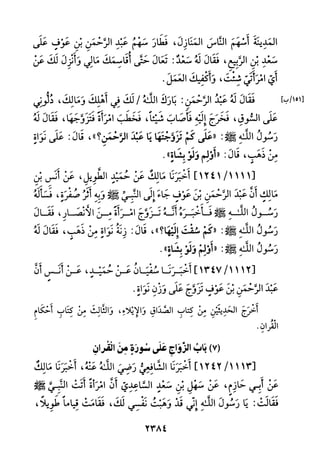 الْمَدِينَةَ أَسْهَمَ النَّاسَ الْمَنَازِلَ، فَطَارَ سَهْمُ عَبْدِ الرَّحْمَنِ بْنِ عَوْفٍ عَلَى
سَعْدِ بْنِ الرَّبِيعِ، فَقَالَ لَهُ سَعْدٌ: تَعَالَ حَتَّى أُقَاسِمَكَ مَالِي وَأَنْزِلَ لَكَ عَنْ
أَيِّ امْرَأَتَيَّ شِئْتَ، وَأَكْفِيَكَ الْعَمَلَ.
[١٥١/ب] فَقَالَ لَهُ عَبْدُ الرَّحْمَنِ: بَارَكَ اللَّهُ / لَكَ فِي أَهْلِكَ وَمَالِكَ، دُلُّونِي
عَلَى السُّوقِ، فَخَرَجَ إِلَيْهِ فَأَصَابَ شَيْئًا، فَخَطَبَ امْرَأَةً فَتَزَوَّجَهَا، فَقَالَ لَهُ
رَسُولُ اللَّهِ ﷺ: «عَلَى كَمْ تَزَوَّجْتَهَا يَا عَبْدَ الرَّحْمَنِ؟»، قَالَ: عَلَى نَوَاةٍ
مِنْ ذَهَبٍ، قَالَ: «أَوْلِمْ وَلَوْ بِشَاةٍ».
[١١١١/ ١٢٤١] أَخْبَرَنَا مَالِكٌ عَنْ حُمَيْدٍ الطَّوِيلِ، عَنْ أَنَسِ بْنِ
مَالِكٍ أَنَّ عَبْدَ الرَّحْمَنِ بْنَ عَوْفٍ جَاءَ إِلَى النَّبِيِّ ﷺ وَبِهِ أَثَرُ صُفْرَةٍ، فَسَأَلَهُ
رَسُولُ اللَّهِ ﷺ فَأَخْبَرَهُ أَنَّهُ تَزَوَّجَ امْرَأَةً مِنَ الْأَنْصَارِ، فَقَالَ
رَسُولُ اللَّهِ ﷺ: «كَمْ سُقْتَ إِلَيْهَا؟»، قَالَ: زِنَةَ نَوَاةٍ مِنْ ذَهَبٍ، فَقَالَ لَهُ
رَسُولُ اللَّهِ ﷺ: «أَوْلِمْ وَلَوْ بِشَاةٍ».
[١١١٢/ ١٣٤٧] أَخْبَرَنَا سُفْيَانُ عَنْ حُمَيْدٍ، عَنْ أَنَسٍ أَنَّ
عَبْدَ الرَّحْمَنِ بْنَ عَوْفٍ تَزَوَّجَ عَلَى وَزْنِ نَوَاةٍ.
أَخْرَجَ الْحَدِيثَيْنِ مِنْ كِتَابِ الصَّدَاقِ وَالْإِيلَاءِ، وَالثَّالِثَ مِنْ كِتَابِ أَحْكَامِ
الْقُرْآنِ.
(٧) بَابُ الزَّوَاجِ عَلَى سُورَةٍ مِنَ الْقُرْآنِ
[١١١٣/ ١٢٤٢] أَخْبَرَنَا الشَّافِعِيُّ رَضِيَ اللَّهُ عَنْهُ، أَخْبَرَنَا مَالِكٌ
عَنْ أَبِي حَازِمٍ، عَنْ سَهْلِ بْنِ سَعْدٍ السَّاعِدِيِّ أَنَّ امْرَأَةً أَتَتْ النَّبِيَّ ﷺ
فَقَالَتْ: يَا رَسُولَ اللَّهِ إِنِّي قَدْ وَهَبْتُ نَفْسِي لَكَ، فَقَامَتْ قِيَامًا طَوِيلًا،
٢٣٨٤